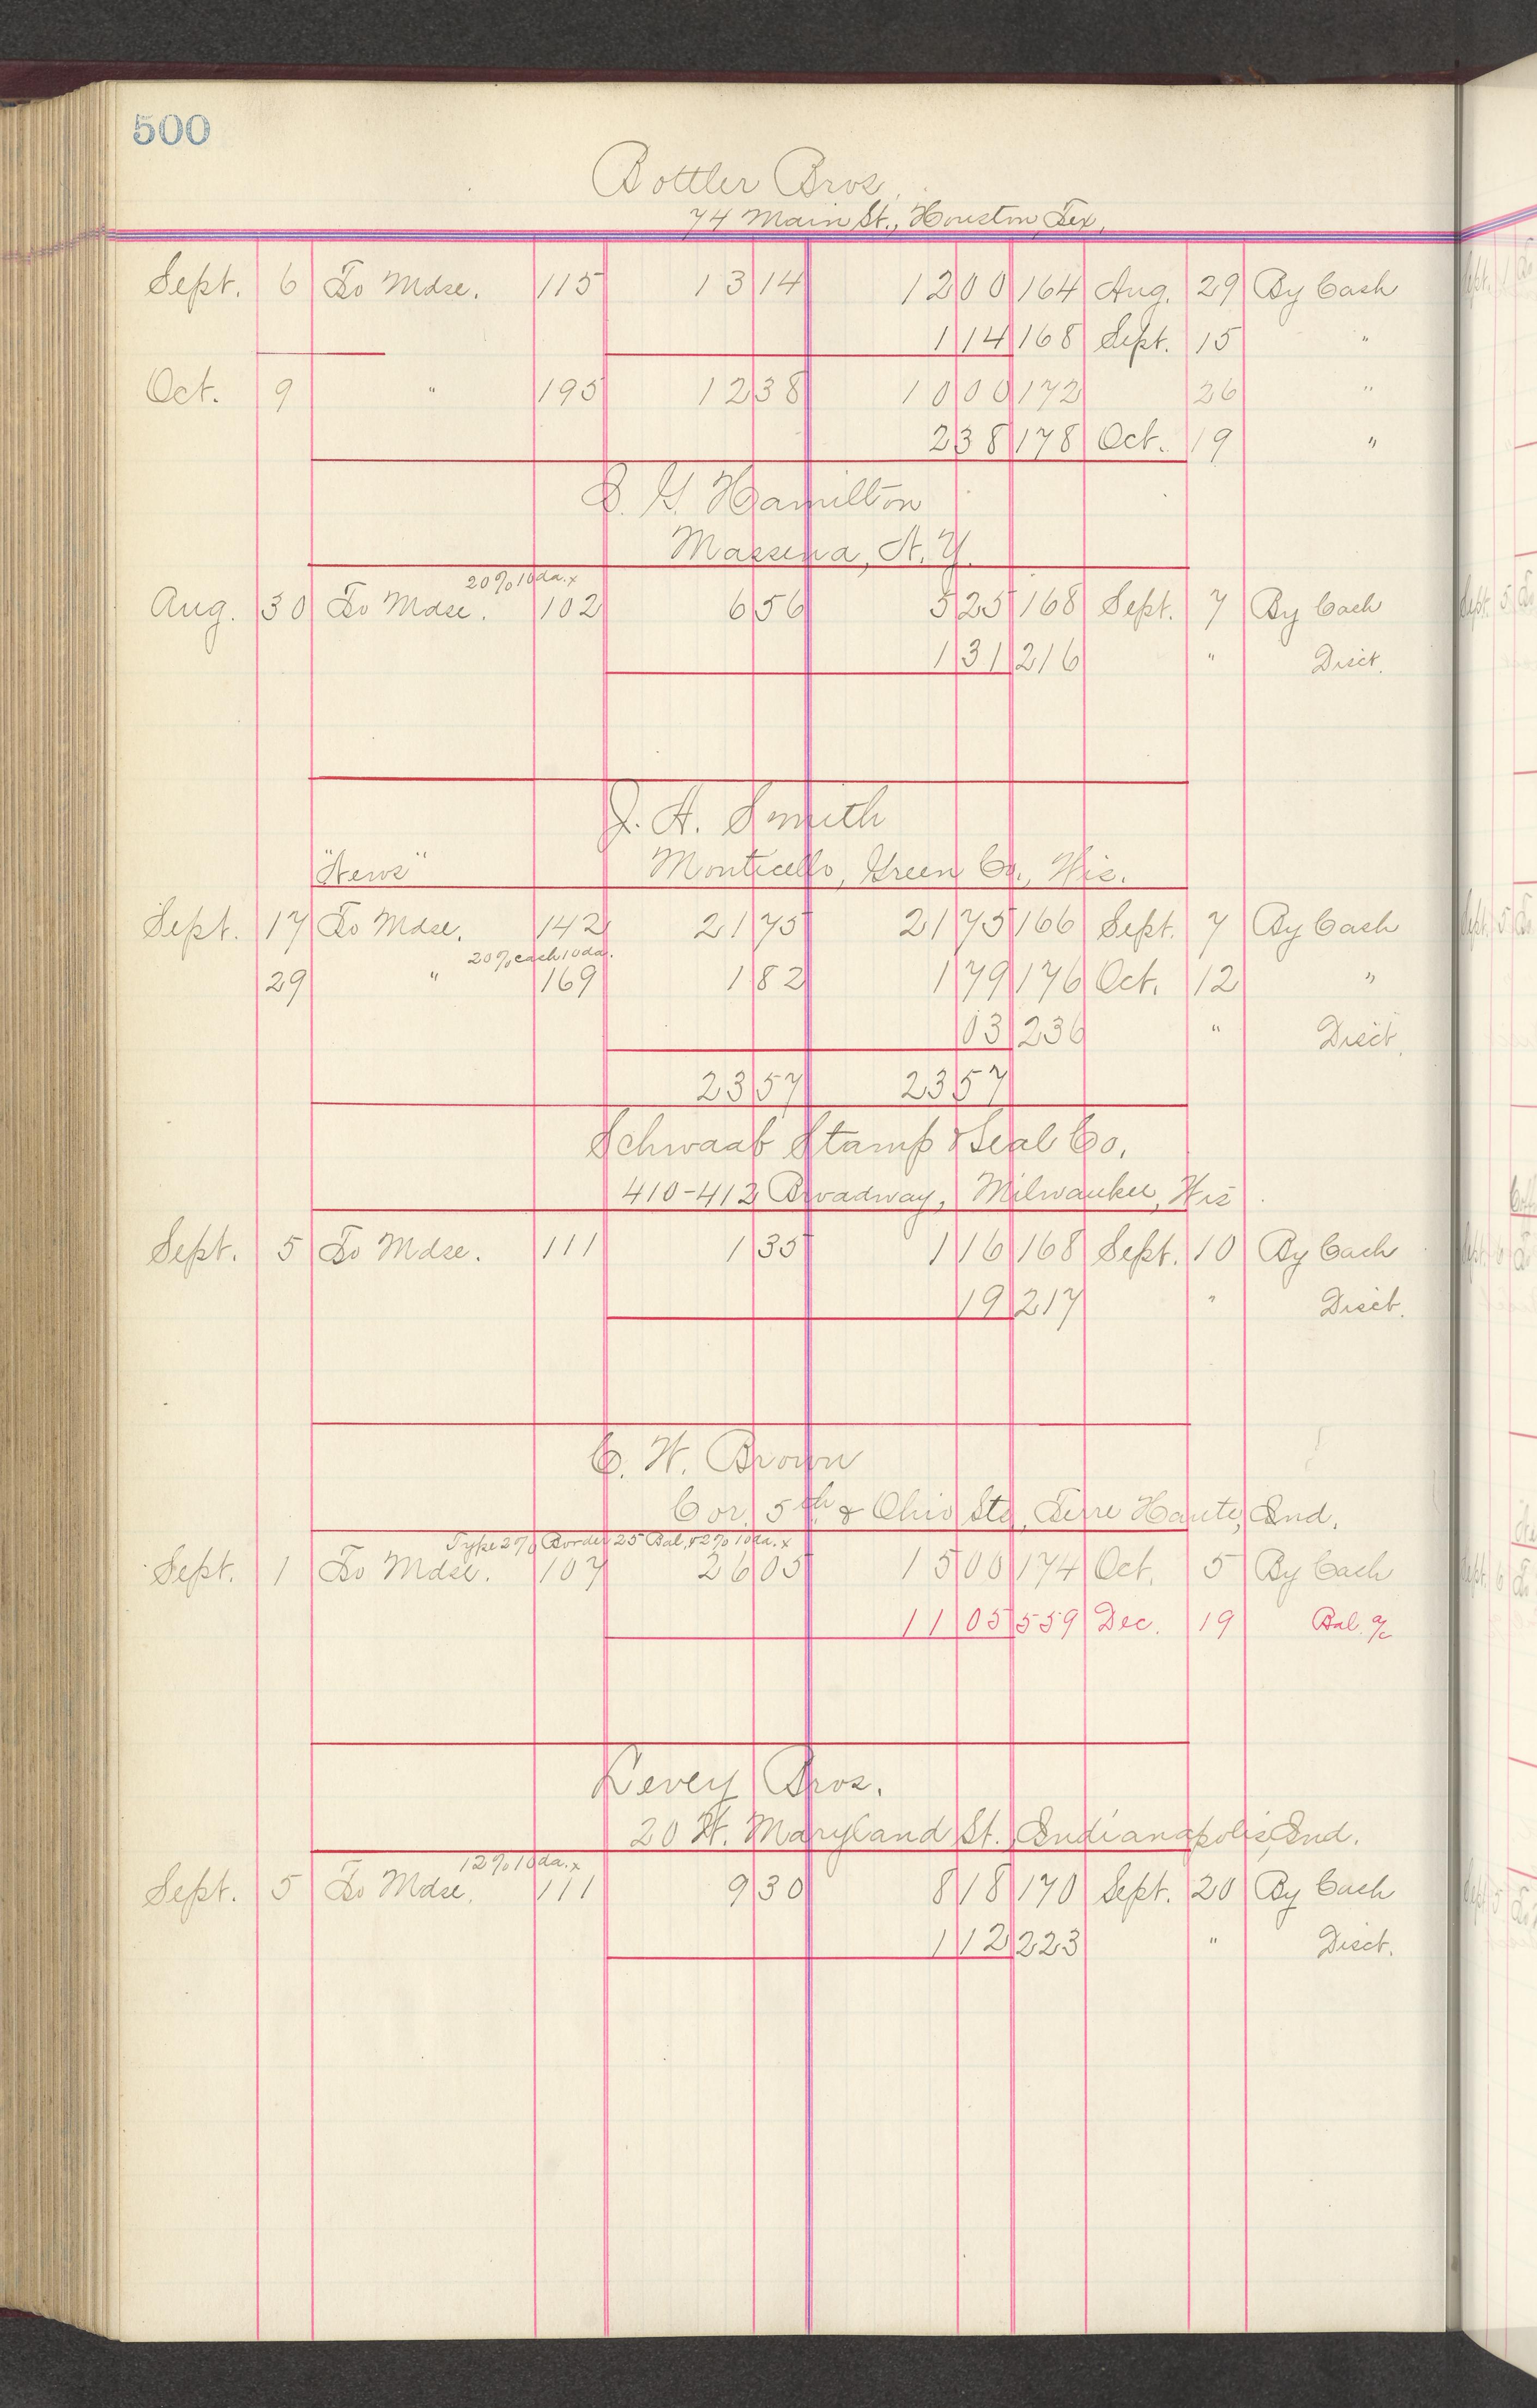 500
Bottler Bros.
74 Main St., Houston, Tex.
Sept. 6 To Mdse. 115 13 14 12 00 164 Aug. 29 By Cash
1 14 168 Sept. 15 "
Oct. 9 " 195 12 38 10 00 172 26 "
2 38 178 Oct. 19 "
Hamilton
Massena, N.Y.
20% 10 da. x
Aug. 30 To Mdse. 102 6 56 5 25 168 Sept. 7 By Cash
1 31 216 " Disct.
J. A. Smith
"News" Monticello, Green Co., Wis.
Sept. 17 To Mdse. 142 21 75 21 75 166 Sept. 7 By Cash
20% cash 10 da.
29 " 169 1 82 1 79 176 Oct. 12 "
03 236 " Disct.
23 57 23 57
Schwaab Stamp & Seal Co.
410-412 Broadway, Milwaukee, Wis
Sept. 5 To Mdse. 111 1 35 1 16 168 Sept. 10 By Cash
19 217 " Disct.
C. W. Brown
Cor. 5th & Ohio Sts, Terre Haute, Ind.
Type 2% Border 25 Bal. 2% 10 da. x
Sept. 1 To Mdse. 107 26 05 15 00 174 Oct. 5 By Cash
11 05 559 Dec. 19 Bal. a/c
Levey Bros.
20 W. Maryland St. Indianapolis, Ind.
12% 10 da. x
Sept. 5 To Mdse. 111 9 30 8 18 170 Sept. 20 By Cash
1 12 223 " Disct.